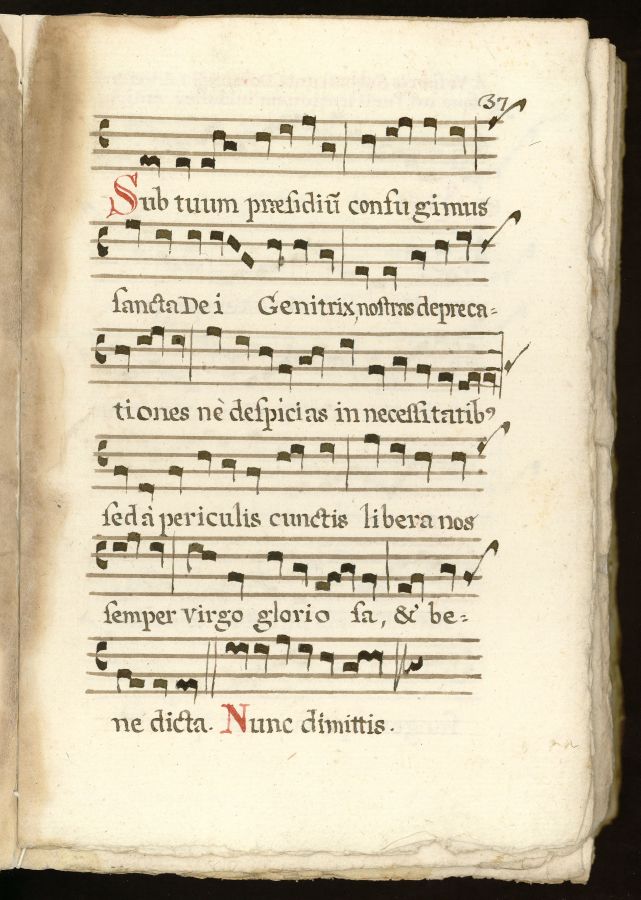 37
Sub tuum præsidiũ confugimus
sancta Dei Genitrix, nostras depreca=
tiones nè despicias in necessitatibꝰ
sed à periculis cunctis libera nos
semper Virgo glorio sa, & be=
ne dicta. Nunc dimittis.